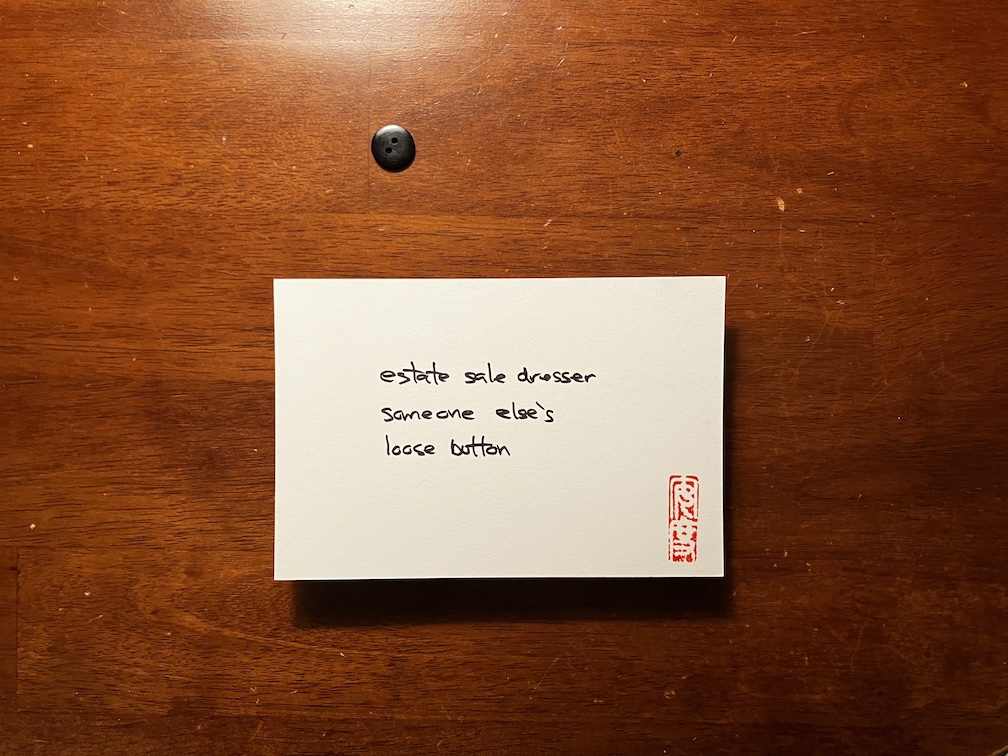 estate sale dresser
someone else's
loose button